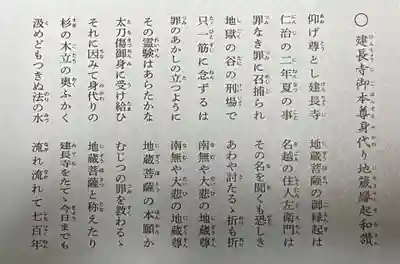 〇 建長寺御本尊身代り地蔵縁起和讃
仰げ尊とし建長寺 地蔵菩薩の御縁起は
仁治の二年夏の事 名越の住人左衛門は
罪なき罪に召捕られ その名を聞くも恐しき
地獄の谷の刑場で あわや討たるゝ折も折
只一筋に念ずるは 南無や大悲の地蔵尊
罪のあかしの立つように 南無や大悲の地蔵尊
その霊験はあらたかな 地蔵菩薩の本願か
太刀傷御身に受け給ひ むじつの罪を救わるゝ
それに因みて身代りの 地蔵菩薩と称えたり
杉の木立の奥ふかく 建長寺をたてゝ今日までも
汲めどもつきぬ法の水 流れ流れて七百年